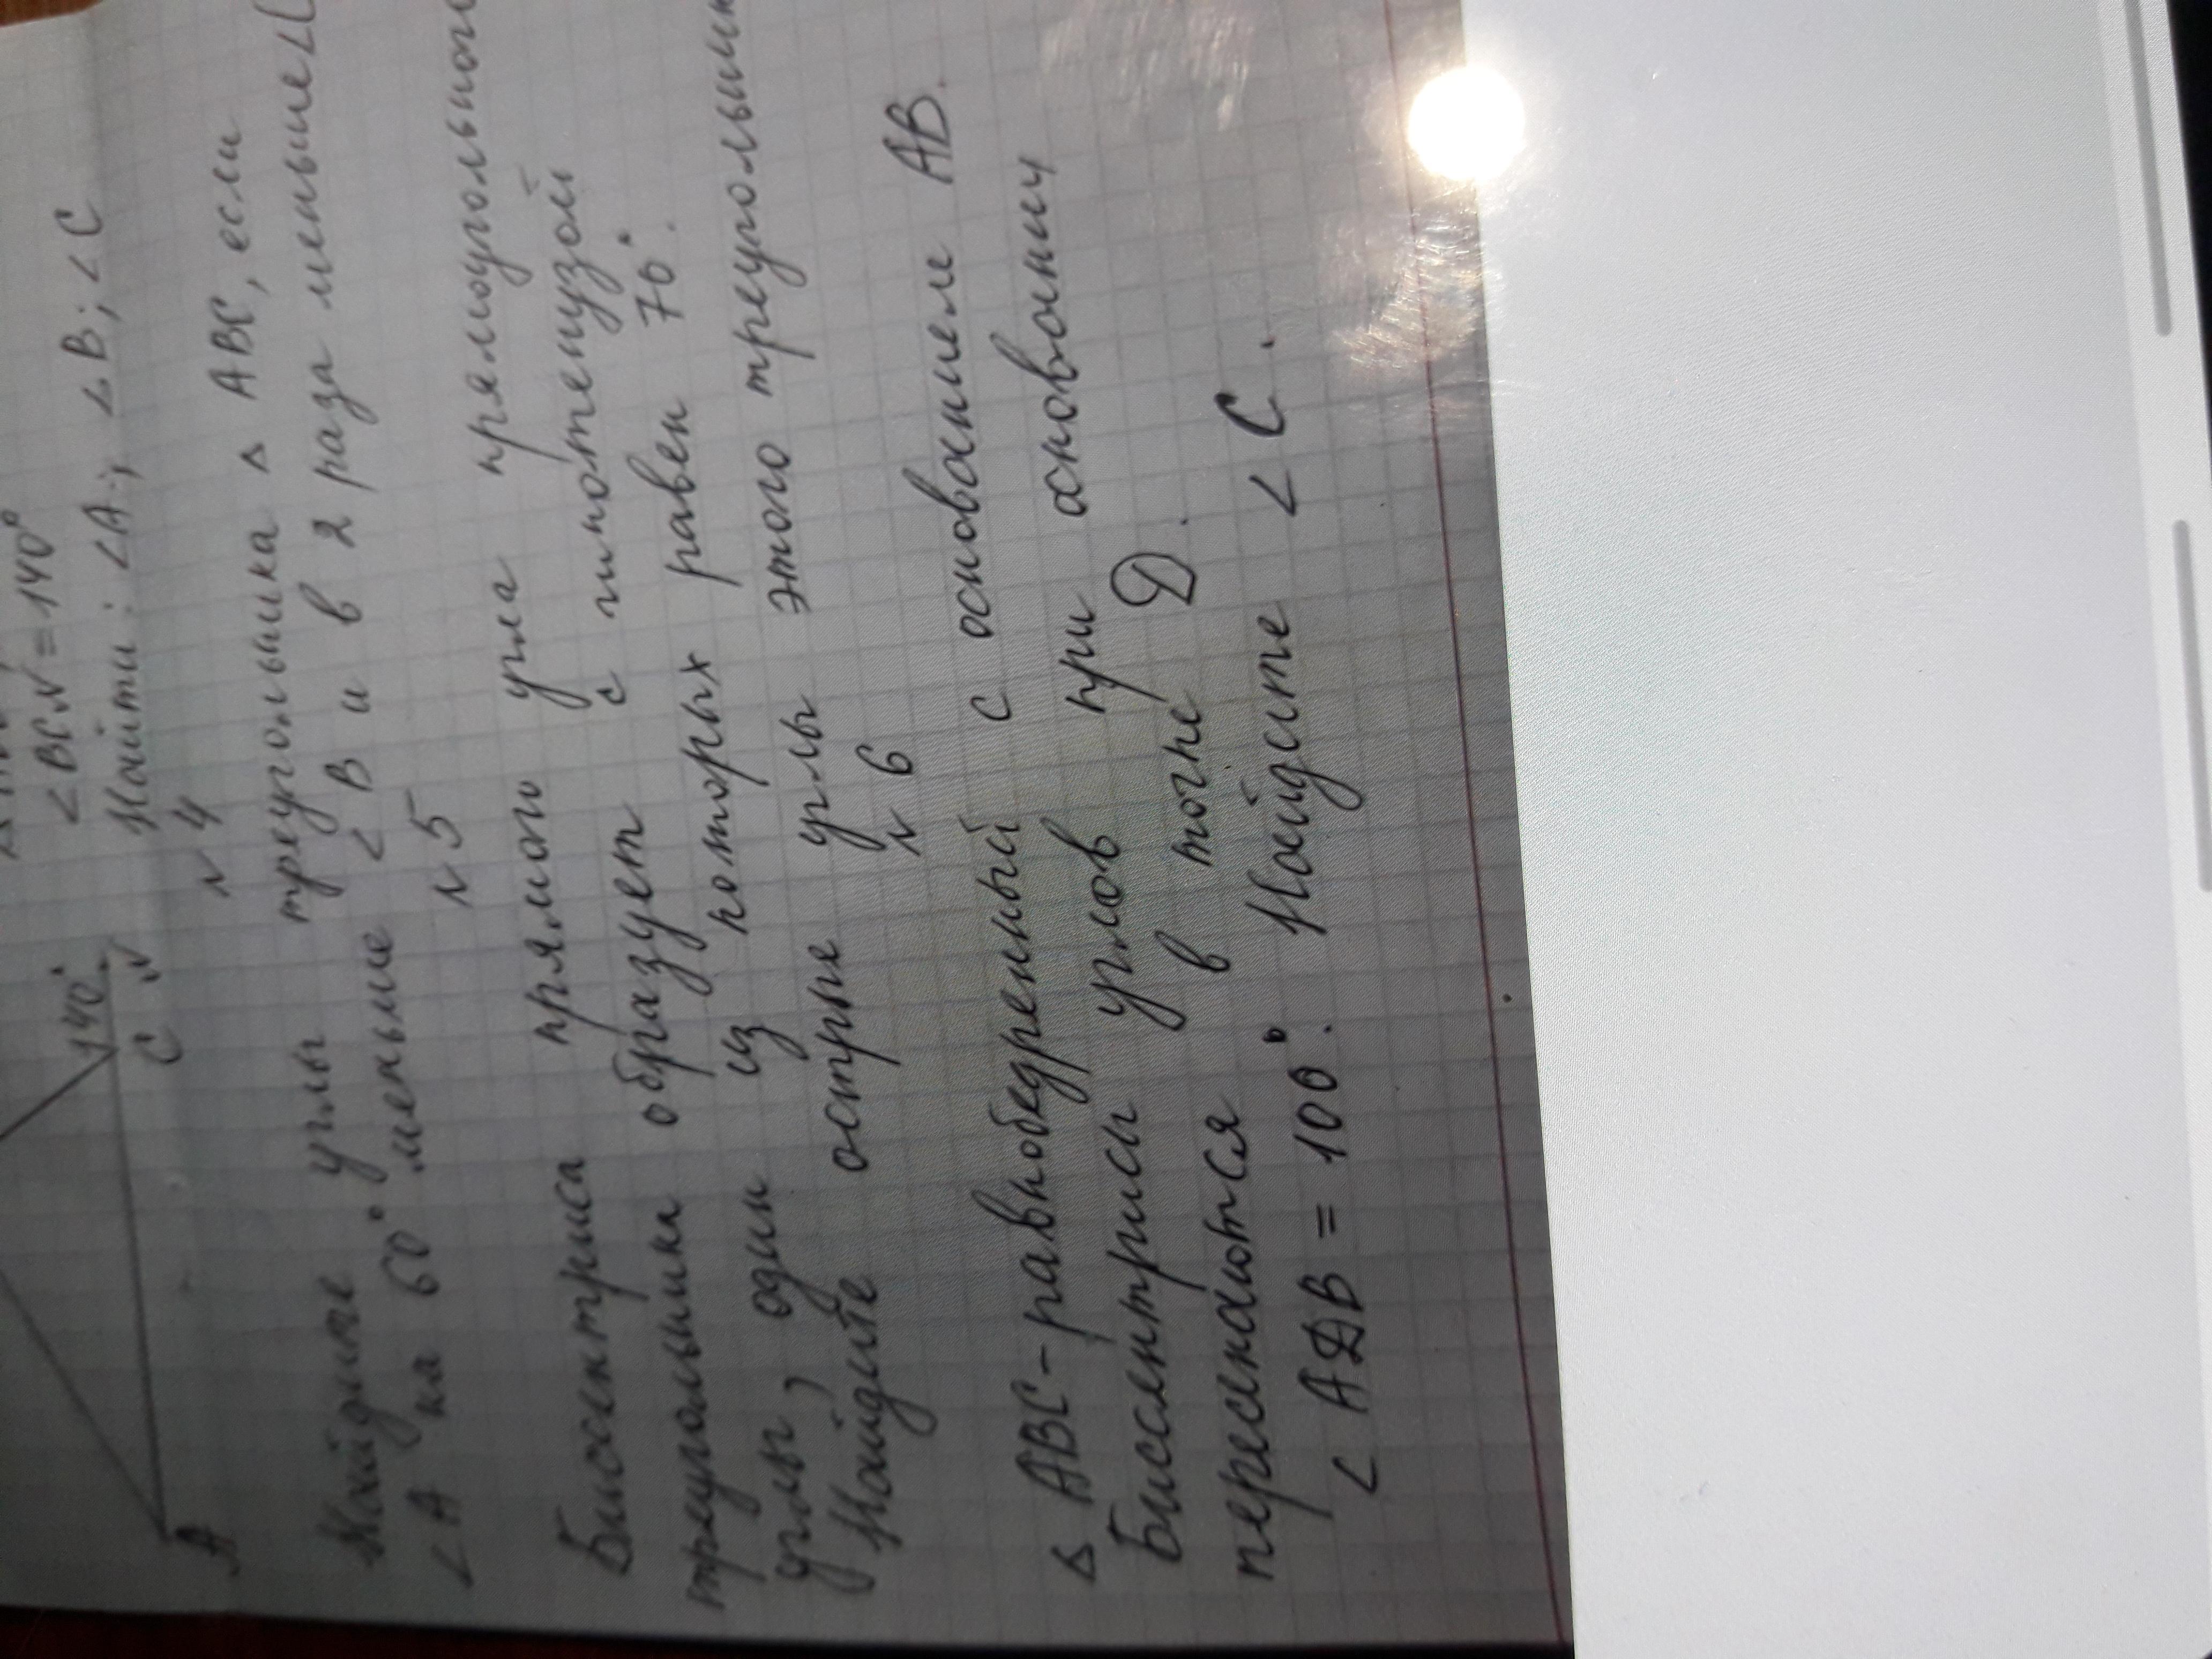 ∠BCN = 140°
Найти: ∠A; ∠B; ∠C
140°
A
C
N
N 4
Найдите углы треугольника △ ABC, если
∠A на 60° меньше ∠B и в 2 раза меньше ∠C
N 5
Биссектриса прямого угла прямоугольного
треугольника образует с гипотенузой
углы, один из которых равен 70°.
Найдите острые углы этого
N 6
△ ABC - равнобедренный с основанием AB.
Биссектрисы углов при основании
пересекаются в точке D.
∠ ADB = 100°. Найдите ∠ C.